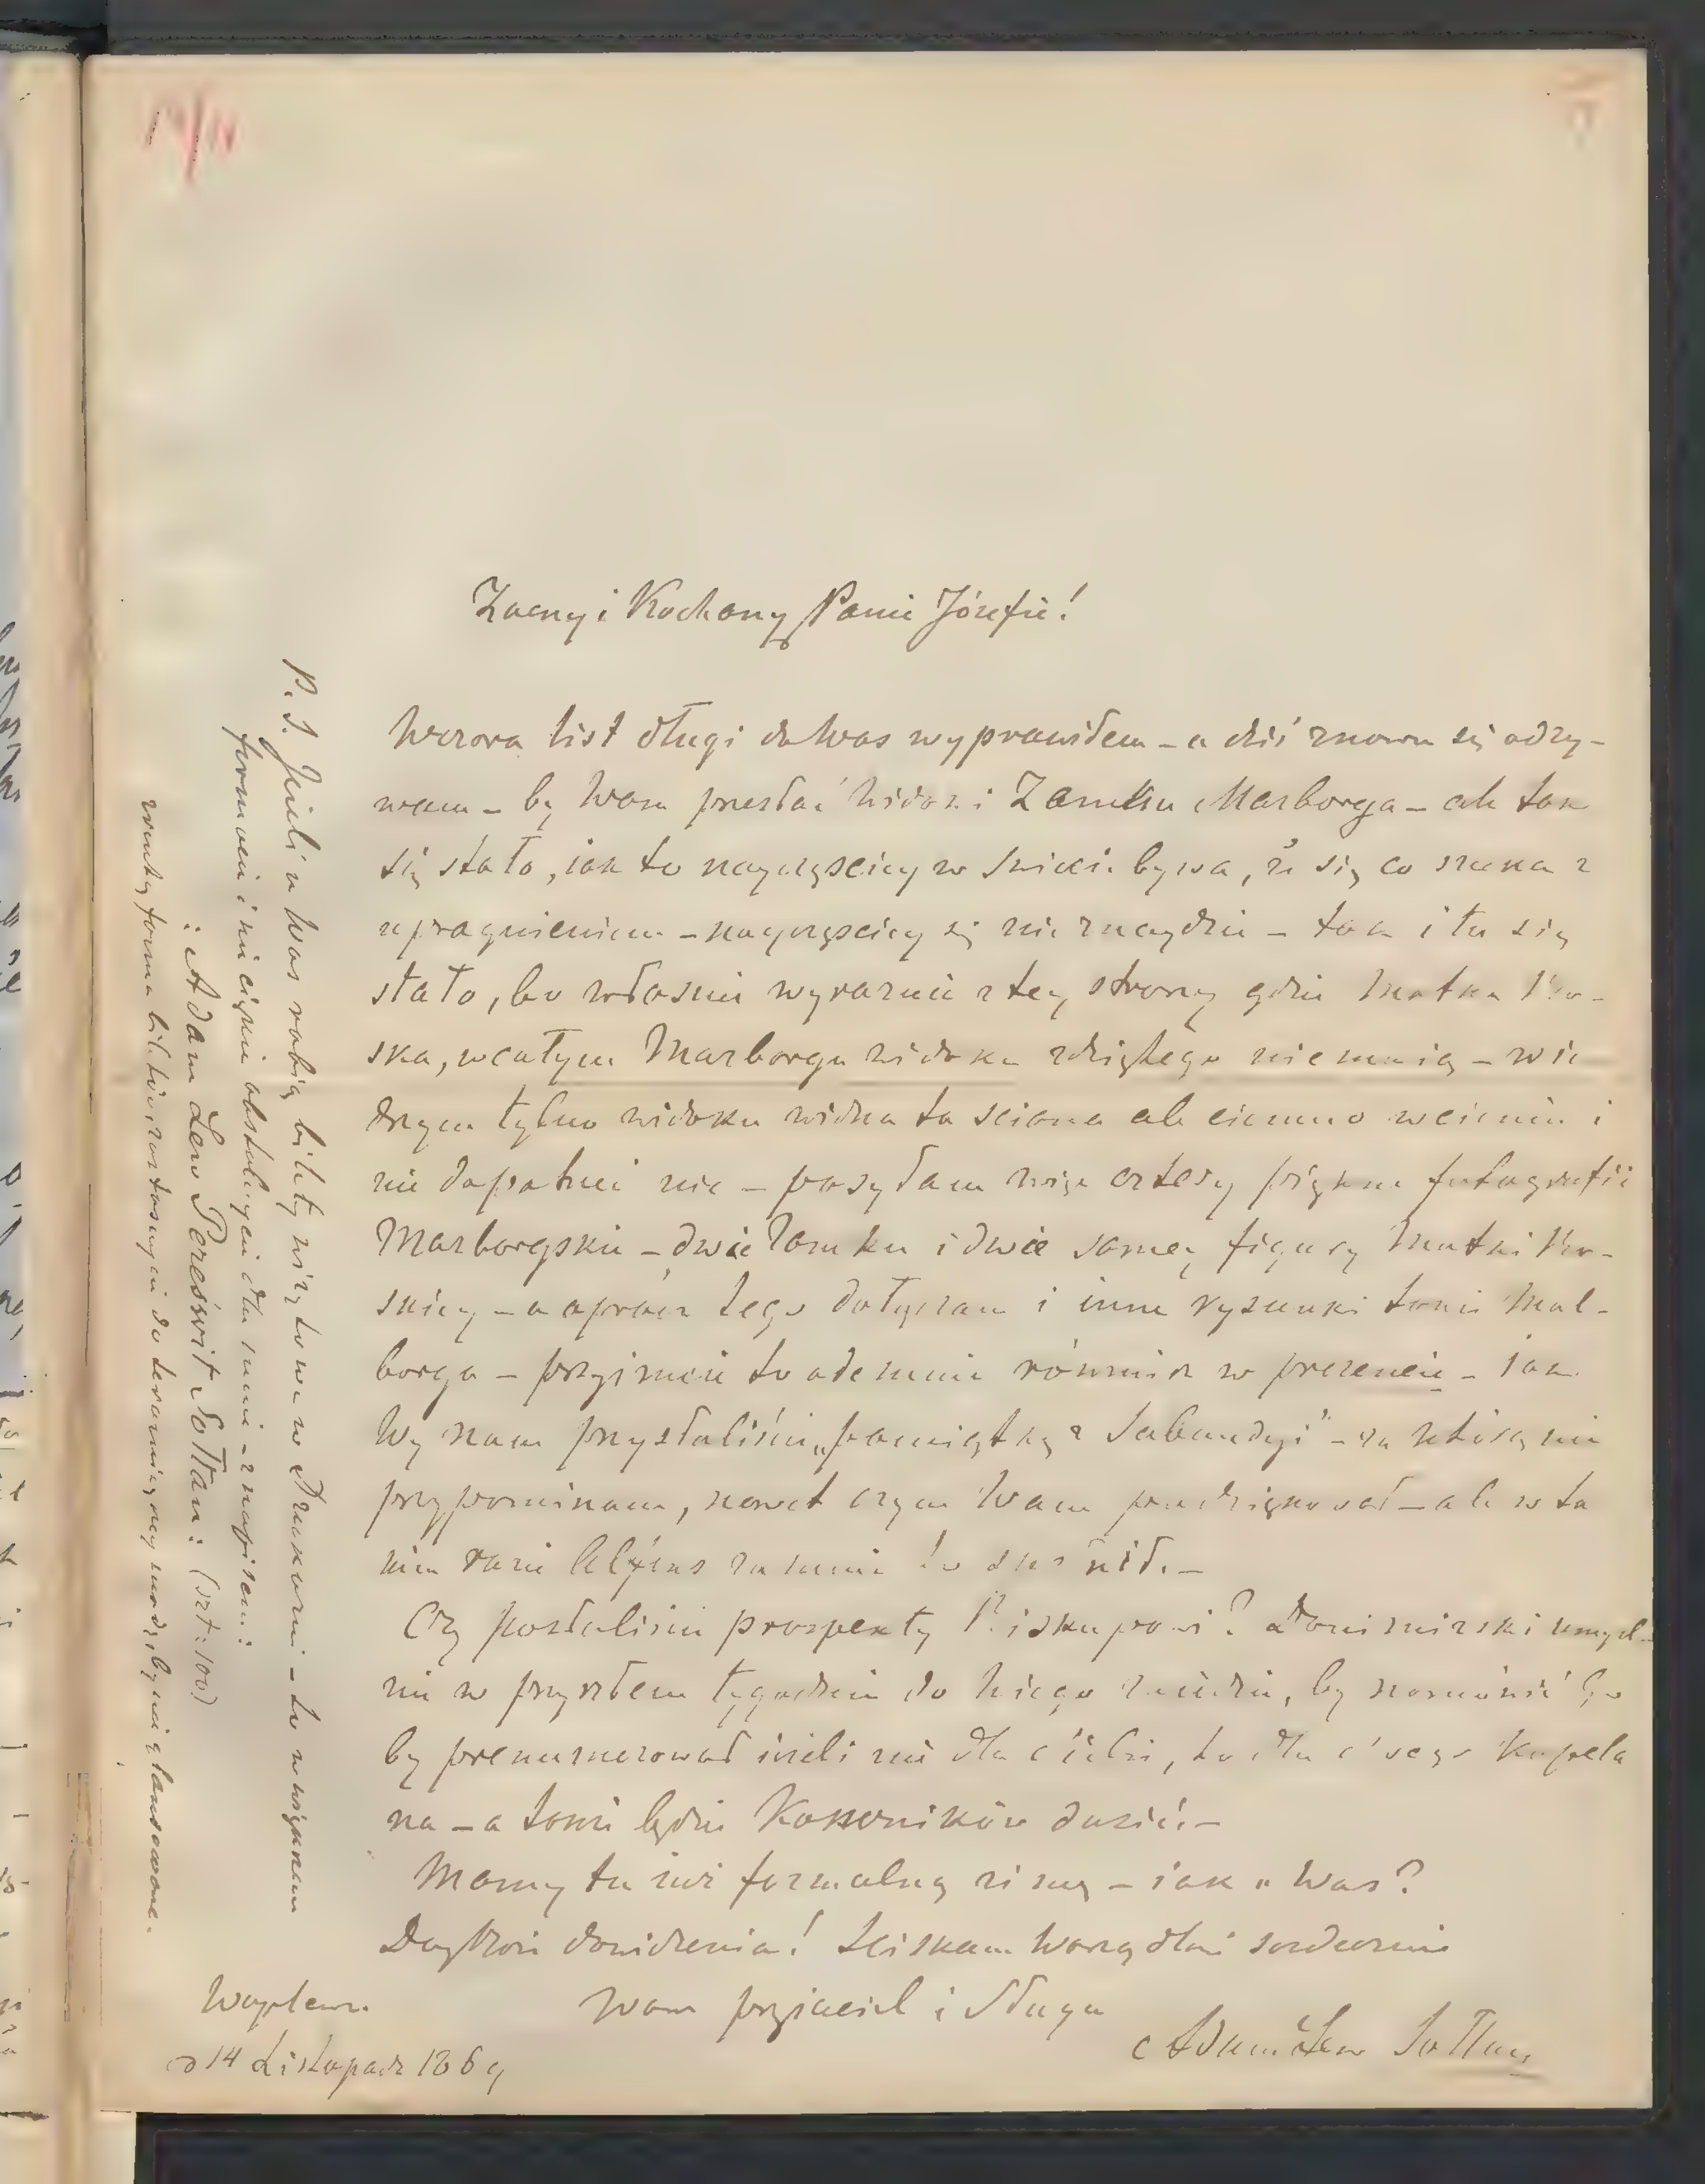 Zacny i Kochany Panie Józefie!
Wczora list długi do Was wyprawiłem – a dziś znowu się odzy-
wam – by Wam przesłać widoki Zamku Marborga – ale tak
się stało, iak to nayczęściey w świecie bywa, że się co szuka z
upragnieniem – nayczęściey się nie znaydzie – tak i tu się
stało, bo własnie wyraznie z tey strony gdzie Matka Bo-
ska, w całym Marborgu widoku zdiętego nie maią – w ie
dnym tylko widoku widna ta sciana ale ciemno w cieniu i
nie dopatrzeć nic – posyłam więc cztery piękne fotografie
Marborgskie – dwie Zamku i dwie samey figury Matki Bo-
skiey – a oprócz tego dołączam i inne rysunki tanie Mal-
borga – przyimcie to odemnie równiesz w prezencie – iak
Wy nam przysłaliście „pamiątkę z Sabaudyi" – za którą nie
przypominam, nawet czym Wam podziękował – ale w ta
kim razie Alfons za mnie to
Czy posłaliscie prospekty Biskupowi? Donimirski umysl-
nie w przyszłem tygodniu do niego by namówić go
by prenumerował ieżeli nie dla siebie, to dla swego Kapela
na – a tamże będzie Kanoników dusić. –
Mamy tu iuż formalną zimę – iak u Was?
Day Boże dowidzenia! Sciskam Waszą dłoń serdecznie
Wam przyiaciel i Sługa
Adam Lew Sołtan
Waplewo
d 14 Listopada 1869
P. S. Jeżeli u Was robią bilety wizytowe w Drukarni – to w większem
formacie i nie cięzkie obstaluycie dla mnie – z napisem:
: Adam Lew Pereświt Sołtan : (szt: 100)
forma biletów zastosuycie do teraznieyszey mody, byle nie glansowane.